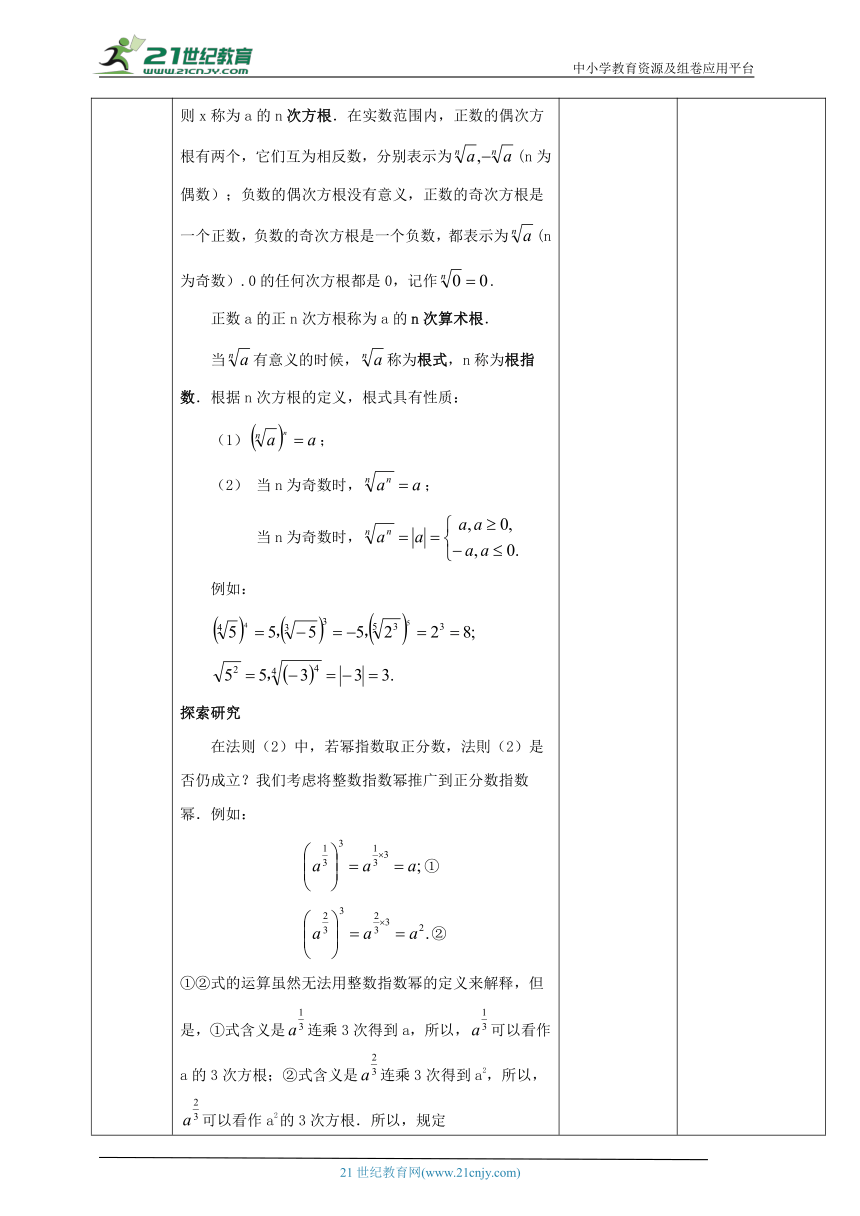 21世纪教育
www.21cnjy.com
中小学教育资源及组卷应用平台
则x称为a的n次方根.在实数范围内,正数的偶次方
根有两个,它们互为相反数,分别表示为ⁿ√a,-ⁿ√a (n为
偶数);负数的偶次方根没有意义,正数的奇次方根是
一个正数,负数的奇次方根是一个负数,都表示为ⁿ√a (n
为奇数).0的任何次方根都是0,记作ⁿ√0=0.
正数a的正n次方根称为a的n次算术根.
当ⁿ√a有意义的时候,ⁿ√a称为根式,n称为根指
数.根据n次方根的定义,根式具有性质:
(1) (ⁿ√a)ⁿ=a;
(2) 当n为奇数时,ⁿ√aⁿ=a;
当n为奇数时,ⁿ√aⁿ=|a|={a,a≥0, -a,a≤0.
例如:
(⁴√5)⁴=5,(³√-5)³=-5,(⁵√2³)⁵=2³=8;
√5²=5,⁴√(-3)⁴=|-3|=3.
探索研究
在法则(2)中,若幂指数取正分数,法则(2)是
否仍成立?我们考虑将整数指数幂推广到正分数指数
幂.例如:
(a^(1/3))³=a^(1/3×3)=a;①
(a^(2/3))³=a^(2/3×3)=a².②
①②式的运算虽然无法用整数指数幂的定义来解释,但
是,①式含义是a^(1/3)连乘3次得到a,所以,a^(1/3)可以看作
a的3次方根;②式含义是a^(2/3)连乘3次得到a²,所以,
a^(2/3)可以看作a²的3次方根.所以,规定
21世纪教育网(www.21cnjy.com)